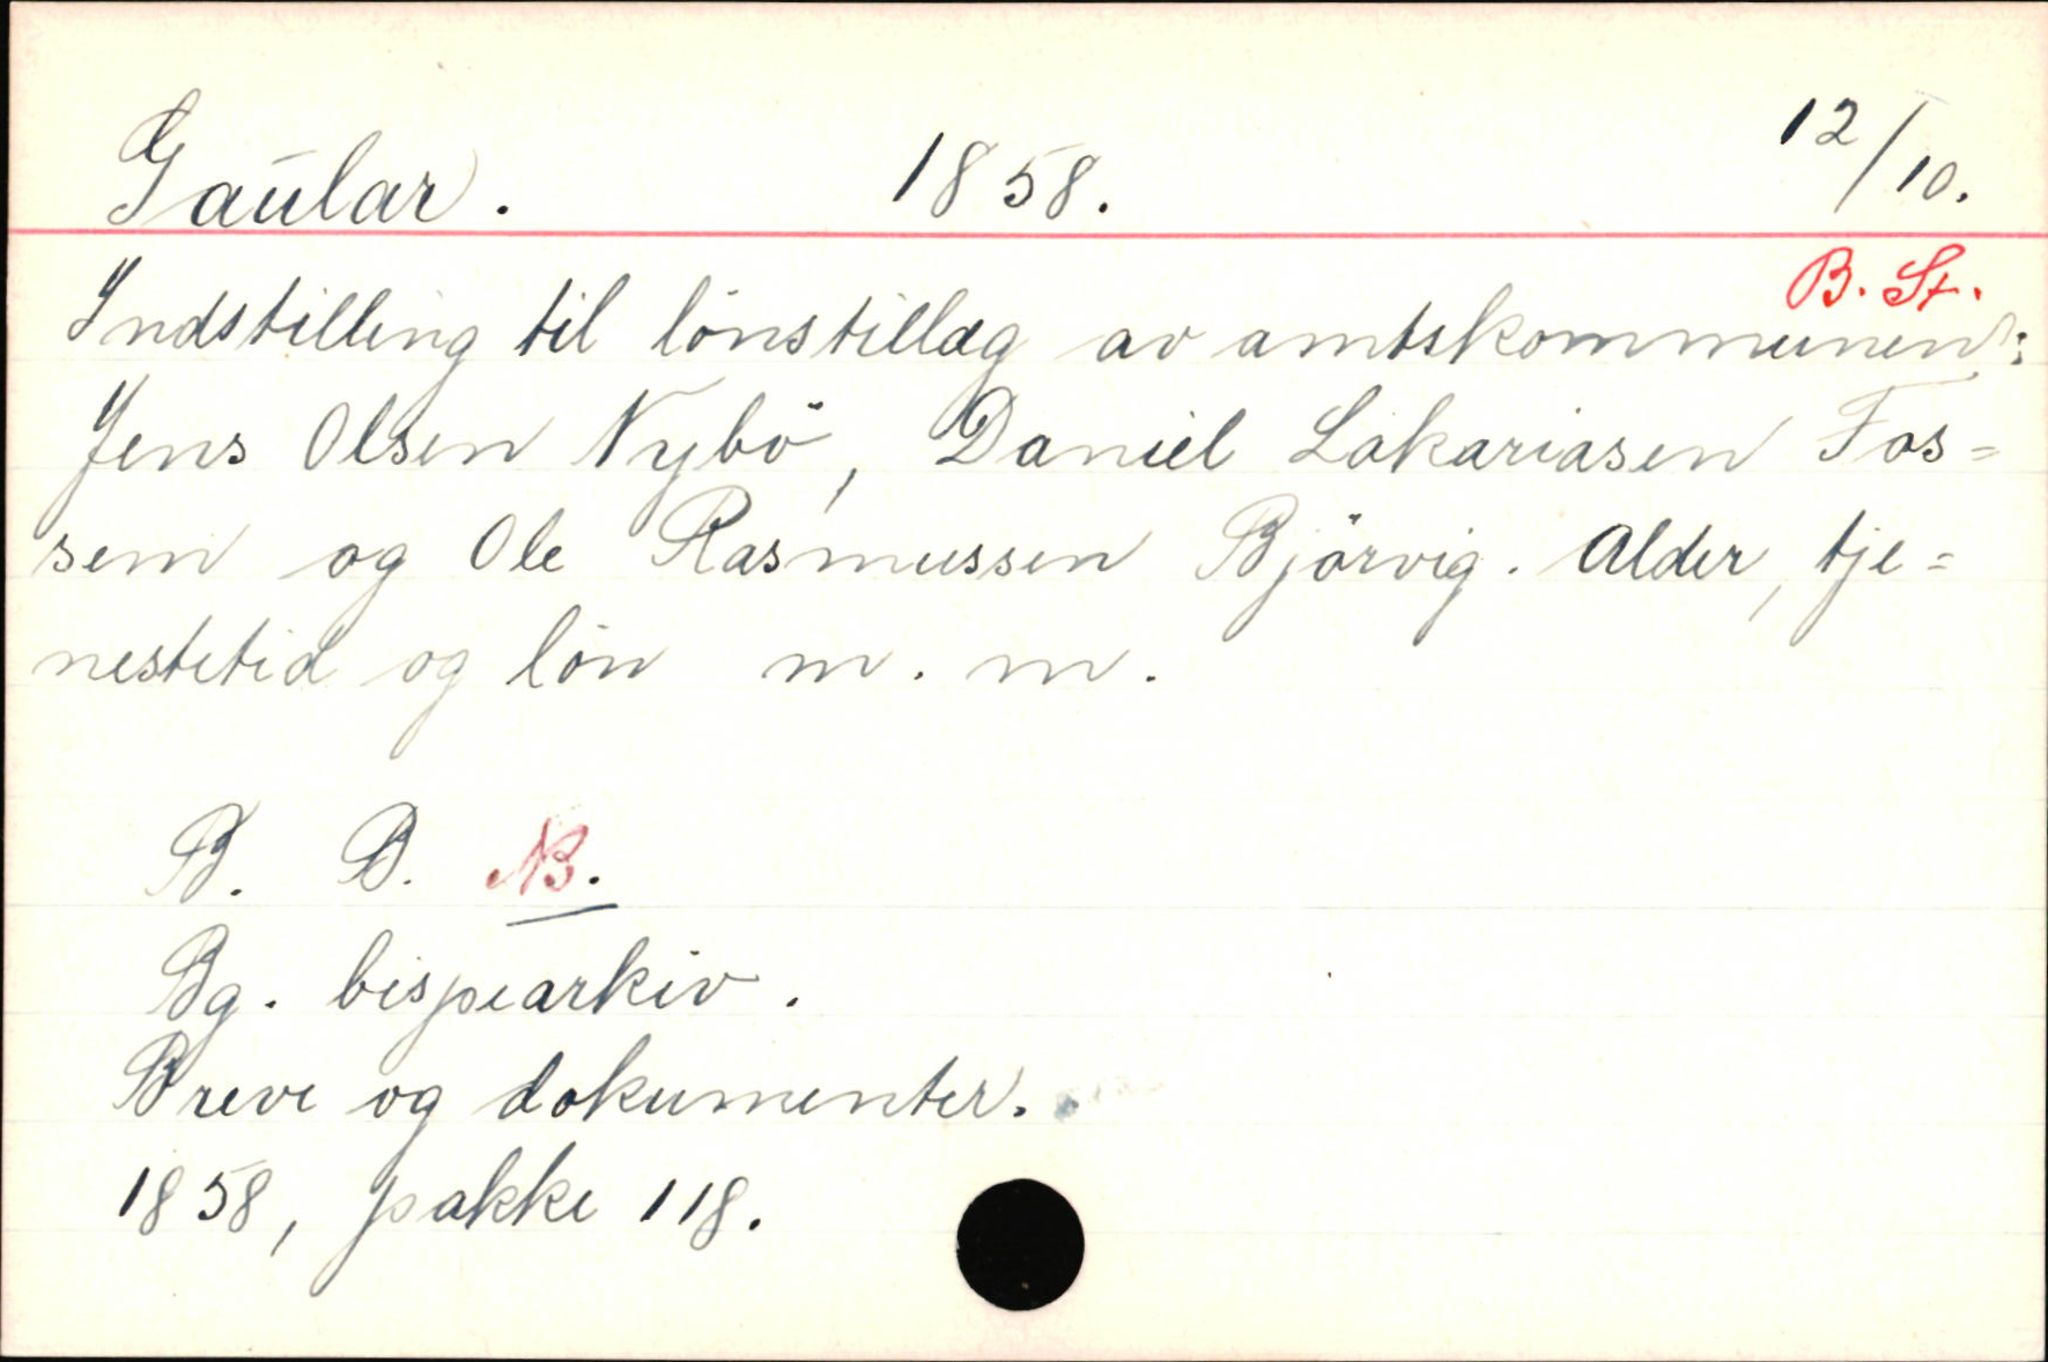 Gaular. 1858. 12/10.
B. St.
Indstilling til lönstillæg av amtskommunen:
Jens Olsen Nybö, Daniel Sakariasen Fos=
sem og Ole Rasmussen Björvig. Alder, tje=
nestetid og lön m. m.
B. D. NB.
Bg. bispearkiv.
Breve og dokumenter.
1858, pakke 118.